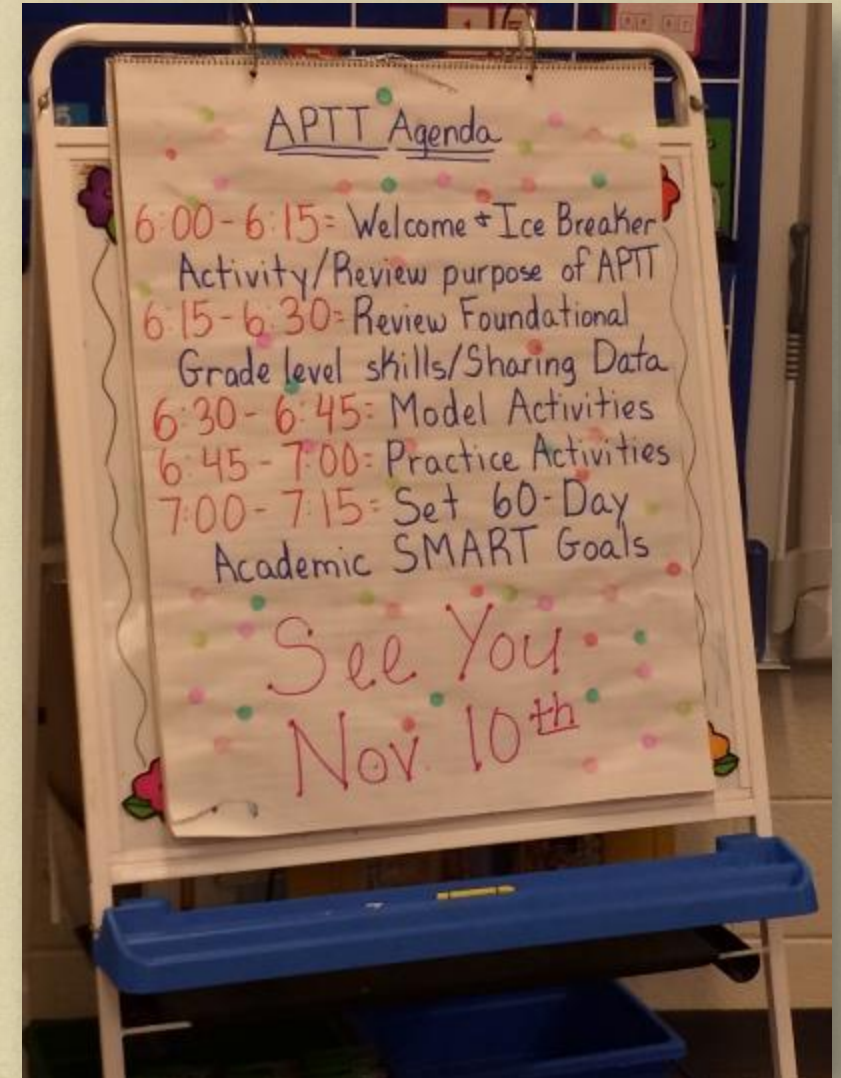 APTT Agenda
6:00-6:15= Welcome + Ice Breaker
Activity/Review purpose of APTT
6:15-6:30= Review Foundational
Grade level skills/Sharing Data
6:30-6:45= Model Activities
6:45-7:00= Practice Activities
7:00-7:15= Set 60-Day
Academic SMART Goals
See You
Nov. 10th